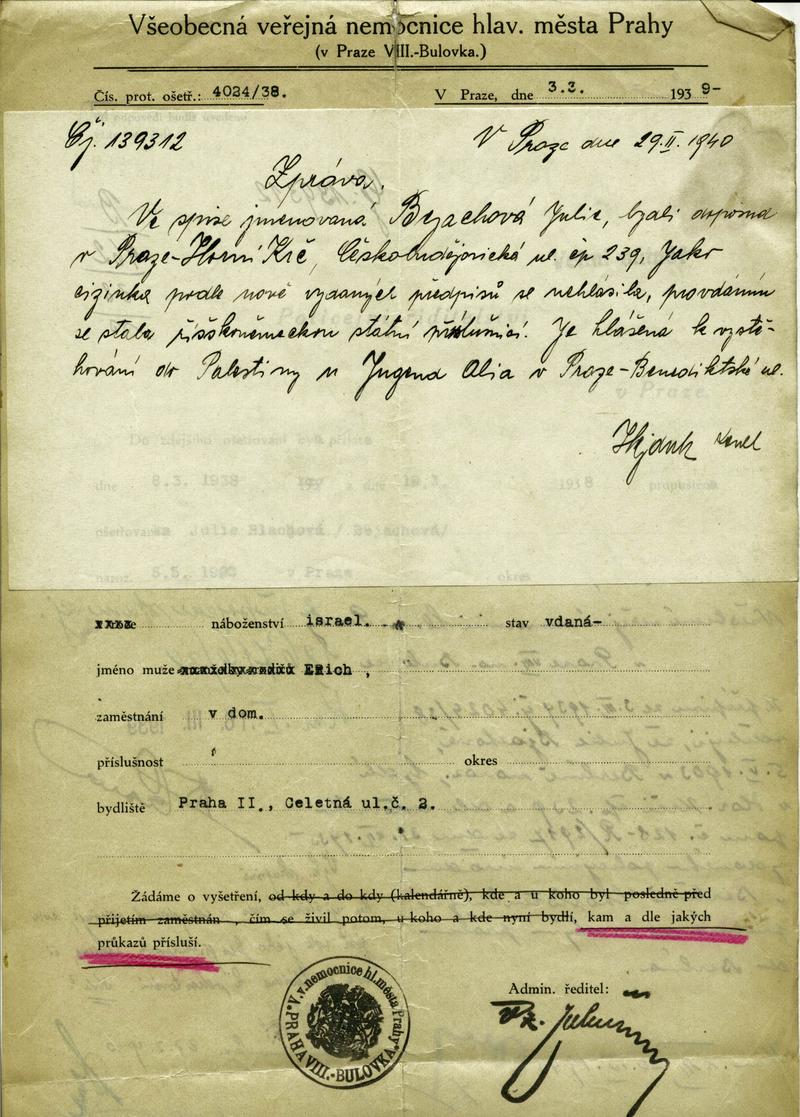 Všeobecná veřejná nemocnice hlav. města Prahy
(v Praze VIII.-Bulovka.)
Čís. prot. ošetř.: 4024/38.
V Praze, dne 3.3. 1939-
Čj. 139312
V Praze dne 29.II.1940
Zpráva.
Ve spise jmenovaná Bejachová Julie, bytem
v Praze-Horní Krč, Českobudějovická ul. čp 239, jako
cizinka podle nově vydaných předpisů se nehlásila, provdáním
se stala říšskoněmeckou státní příslušnicí. Je hlášená k vystě-
hování do Palestiny u Jugend Alia v Praze-Benediktské ul.
Do zdejšího ošetřování byla přijata
dne 8.3. 1938 1938 propuštěna
Julie Blachová / Bejachová/
naroz. 5.5. v Praze okres
náboženství israel. stav vdaná-
jméno muže Erich,
zaměstnání v dom.
příslušnost okres
bydliště Praha II., Celetná ul.č. 2.
Žádáme o vyšetření, od kdy a do kdy (kalendářně), kde a u koho byl posledně před
přijetím zaměstnán, čím se živil potom, u koho a kde nyní bydlí, kam a dle jakých
průkazů přísluší.
V.v.nemocnice hl.města Prahy
PRAHA VIII.-BULOVKA
Admin. ředitel: